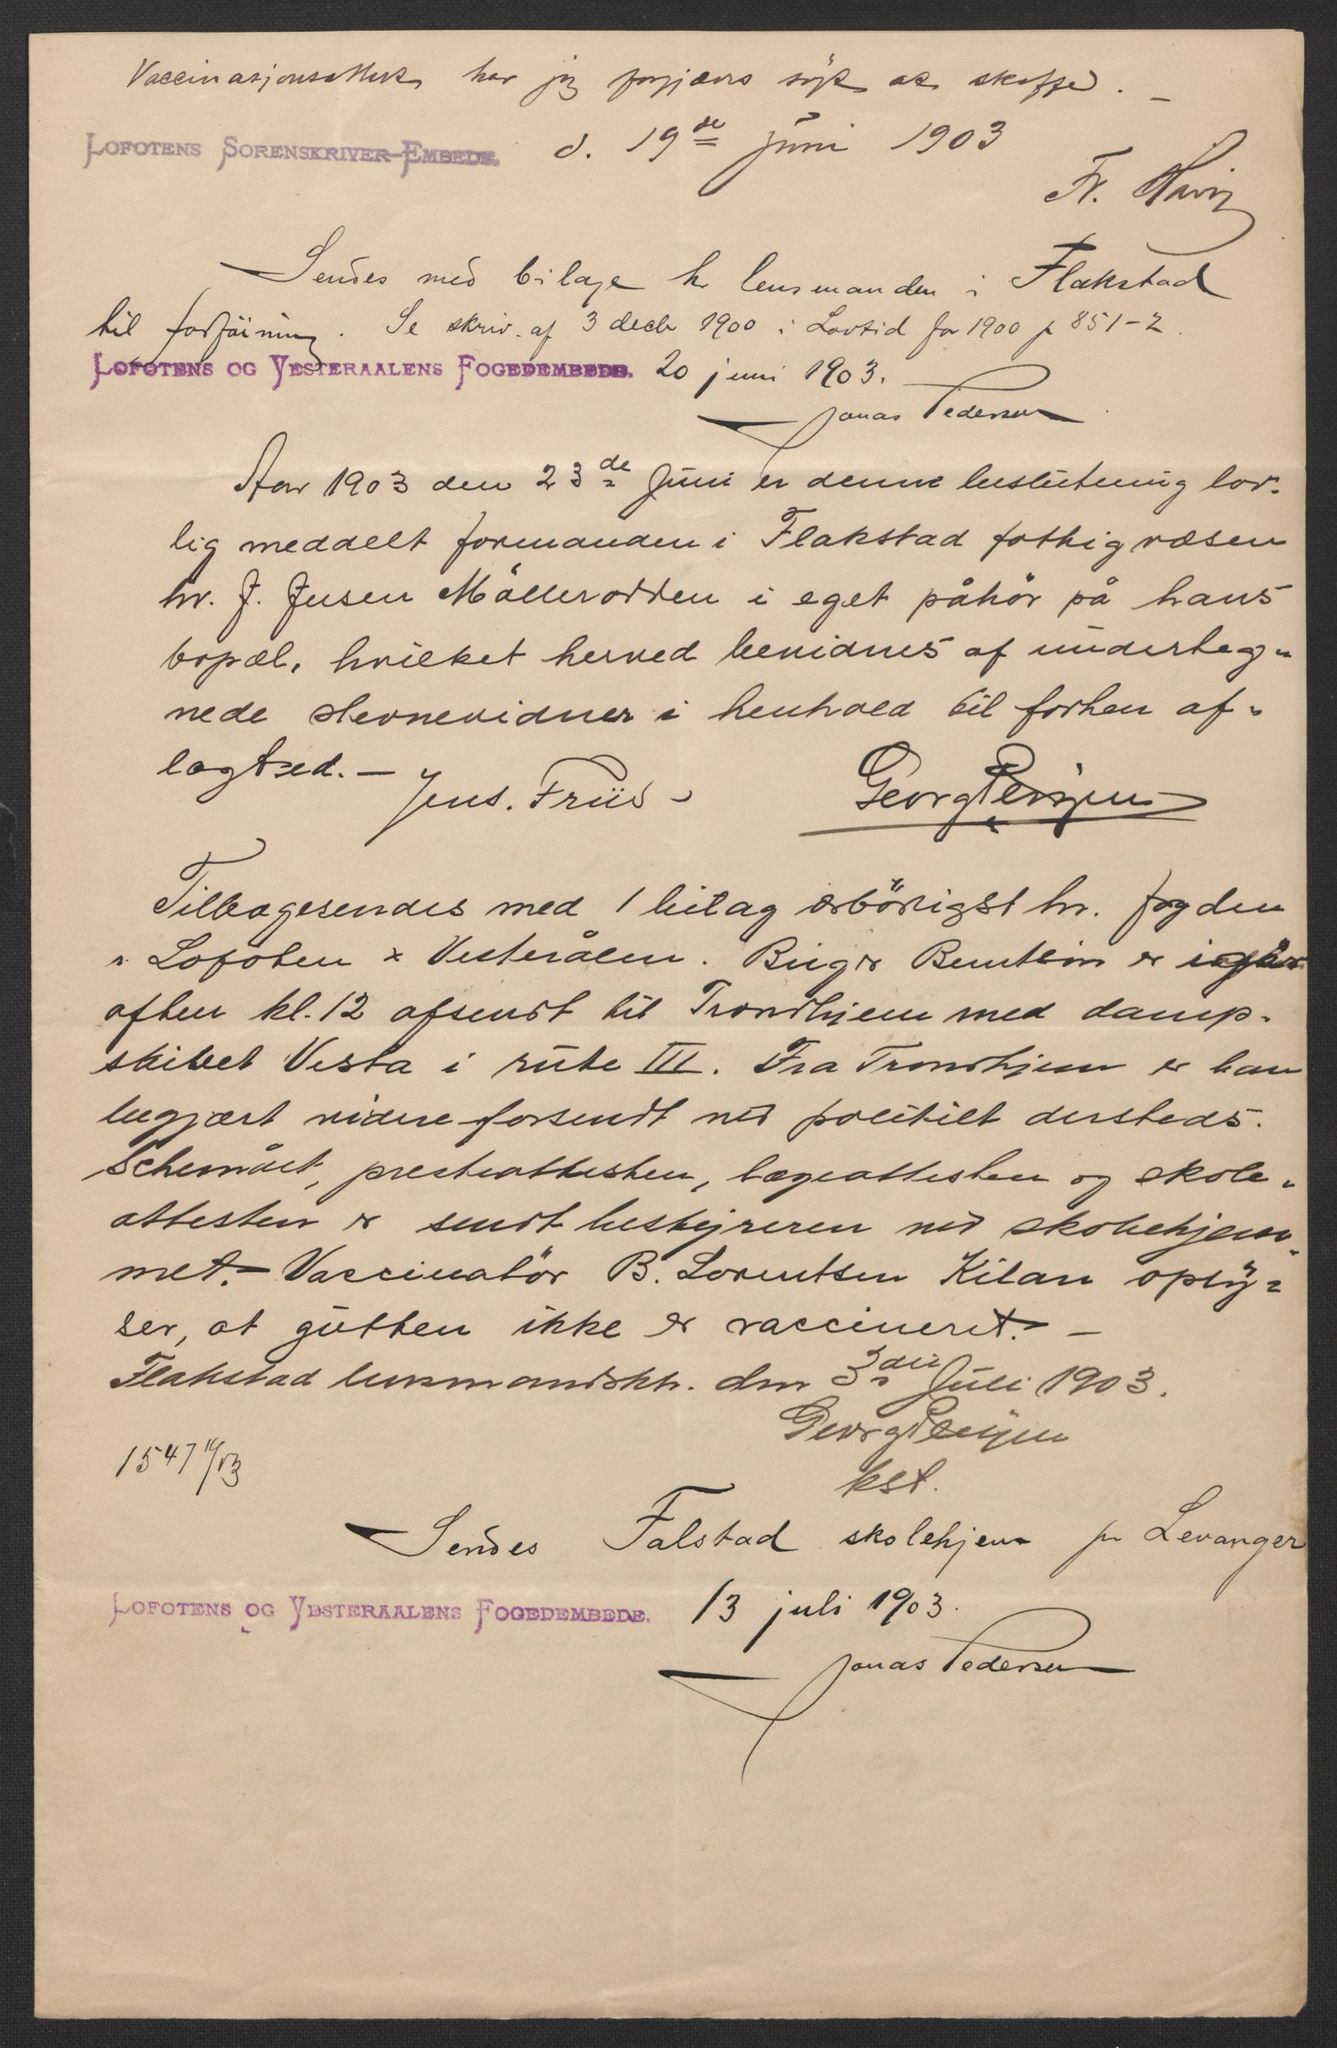 Vaccinasjonsattest har jeg forgjæves søgt at skaffe. –
LOFOTENS SORENSKRIVER-EMBEDE. d. 19de Juni 1903
Fr.
Sendes med bilage hr lensmanden i Flakstad
til forføining. Se skriv. af 3 decbr 1900 i Lovtid for 1900 p 851-2.
LOFOTENS OG VESTERAALENS FOGEDEMBEDE. 20 juni 1903.
Jonas Pedersen
Aar 1903 den 23de Juni er denne beslutning lov-
lig meddelt formanden i Flakstad fattigvæsen
hr. J. Jusen Möllerodden i eget påhör på hans
bopæl, hvilket herved bevidnes af underteg-
nede stevnevidner i henhold til forhen af-
lagt ed. –
Jens. Friis Georg
Tilbagesendes med 1 bilag ærbödigst hr. fogden
i Lofoten & Vesterålen. Birger Berntsen er igår
aften kl. 12 afsendt til Trondhjem med damp-
skibet Vesta i rute III. Fra Trondhjem er han
begjært videre forsendt ved politiet dersteds.
Schemaet, presteattesten, lægeattesten og skole-
attesten er sendt bestyreren ved skolehjem-
met. – Vaccinatör B. Lorentsen Kilan oply-
ser, at gutten ikke er vaccineret. –
Flakstad lensmandsktr. den 3die Juli 1903.
Georg
kst.
1547 11/7 03
Sendes Falstad skolehjem pr Levanger
LOFOTENS OG VESTERAALENS FOGEDEMBEDE. 13 juli 1903.
Jonas Pedersen